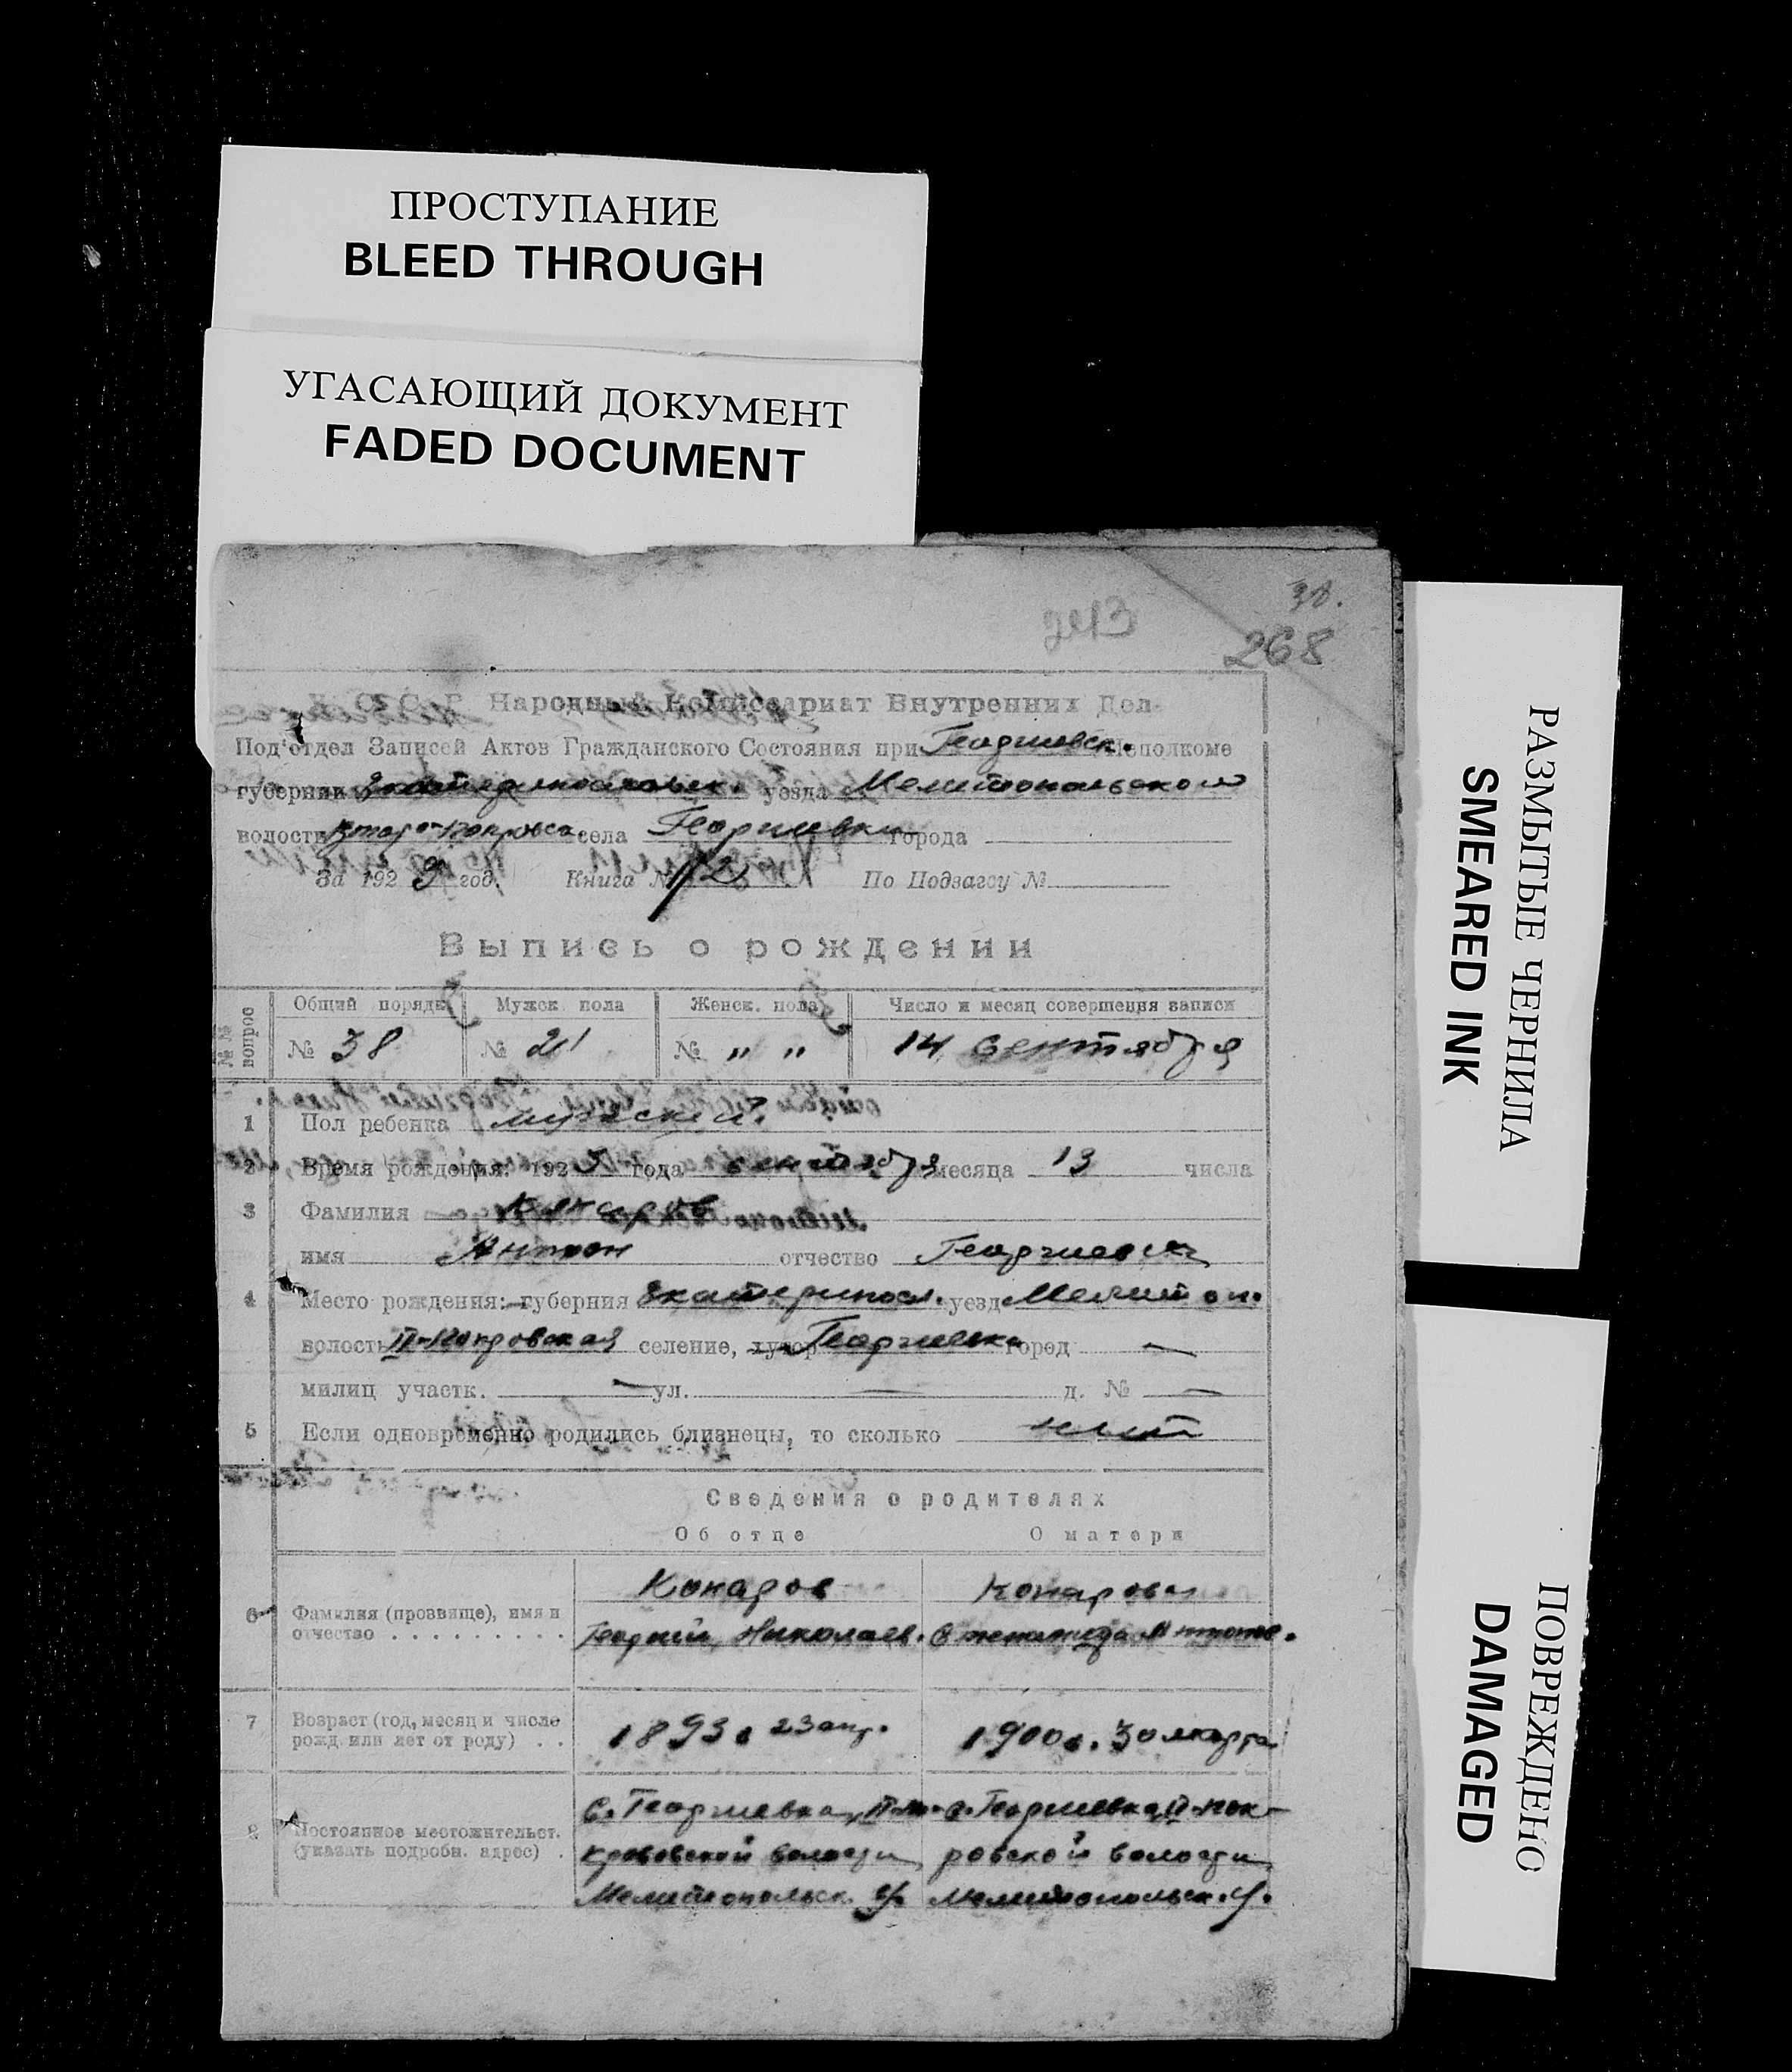 ПРОСТУПАНИЕ
BLEED THROUGH
УГАСАЮЩИЙ ДОКУМЕНТ
FADED DOCUMENT
38.
268
Народный Комиссариат Внутренних Дел
Под'отдел Записей Актов Гражданского Состояния при Георгиевск. Исполкоме
губернии Екатеринославск. уезда Мелитопольского
волости Второ-Покровск. села Георгиевки города
За 192 год. Книга № 1/2 По Подзагсу №
Выпись о рождении
№№ вопрос
Общий порядк Мужск. пола Женск. пола Число и месяц совершения записи
№ 38 № 21 № " " 14 сентября
1 Пол ребенка мужской.
2 Время рождения: 192 года сентября месяца 13 числа
3 Фамилия Конаров
имя Антон отчество Георгиевич
4 Место рождения:—губерния Екатеринос. уезд Мелитоп.
волость II-Покровская селение, хутор Георгиевка город —
милиц участк. — ул. — д. № —
5 Если одновременно родились близнецы, то сколько нет
Сведения о родителях
Об отце О матери
6 Фамилия (прозвище), имя и отчество Конаров Конарова
Георгий Николаев. Степанида Антонов.
7 Возраст (год, месяц и число рожд. или лет от роду) 1893 г. 23 апр. 1900 г. 30 марта
8 Постоянное местожительст. (указать подробн. адрес) с. Георгиевка, II-По- с. Георгиевка, II-Пок-
кровской волости ровской волости
Мелитопольск. у. Мелитопольск. у.
РАЗМЫТЫЕ ЧЕРНИЛА
SMEARED INK
ПОВРЕЖДЕНО
DAMAGED